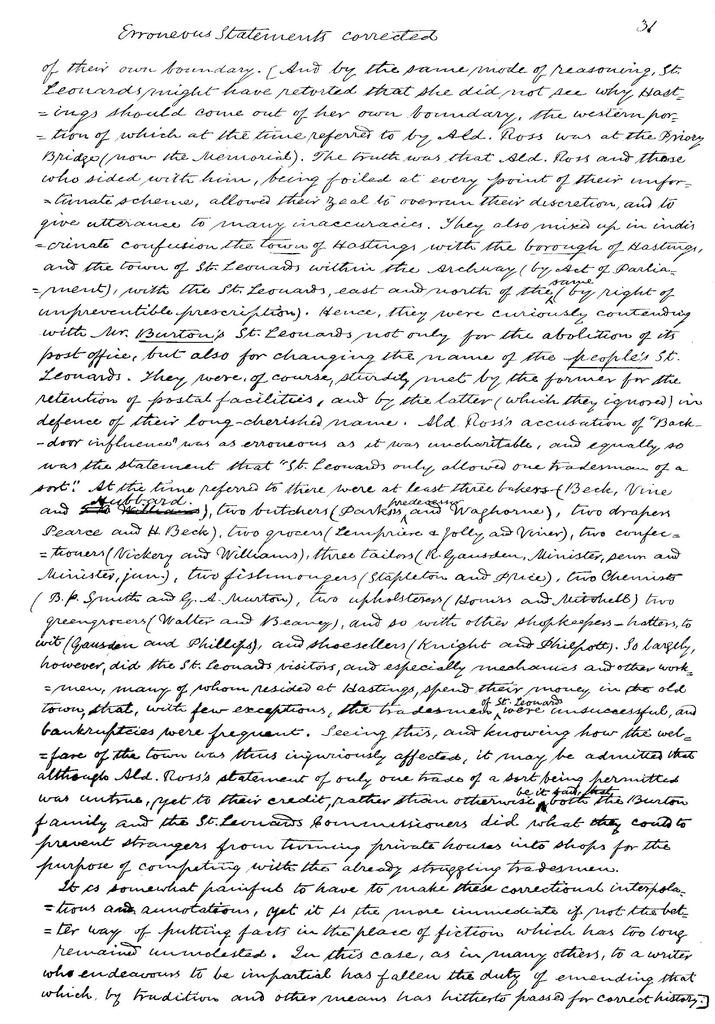 Erroneous Statements corrected 31
of their own boundary. [And by the same mode of reasoning, St.
Leonards might have retorted that she did not see why Hast-
=ings should come out of her own boundary, the western por-
=tion of which at the time referred to by Ald. Ross was at the Priory
Bridge (now the Memorial). The truth was that Ald. Ross and those
who sided with him, being foiled at every point of their unfor-
=tunate scheme, allowed their zeal to overrun their discretion, and to
give utterance to many inaccuracies. They also mixed up in indis
=criminate confusion the town of Hastings with the borough of Hastings,
and the town of St. Leonards within the Archway (by Act of Parlia-
=ment), with the St. Leonards, east and north of the same (by right of
unpreventible prescription). Hence, they were curiously contending
with Mr. Burton's St. Leonards not only for the abolition of its
post office, but also for changing the name of the people's St.
Leonards. They were, of course, sturdily met by the former for the
retention of postal facilities, and by the latter (which they ignored) in
defence of their long-cherished name. Ald. Ross's accusation of "Back-
-door influence" was as erroneous as it was uncharitable, and equally so
was the statement that "St. Leonards only allowed one tradesman of a
sort". At the time referred to there were at least three bakers (Beck, Vine
and Hubbard), two butchers (Parks's predecessor and Waghorne), two drapers
Pearce and H Beck), two grocers (Lempriere & Jolly and Viner), two confec-
=tioners (Vickery and Williams), three tailors (R. Gausden, Minister, senr and
Minister, jun.), two fishmongers (Stapleton and Price), two Chemists
(B. P. Smith and G. A. Murton), two upholsterers (Honiss and Mitchell) two
greengrocers (Walter and Beaney), and so with other shopkeepers—hatters, to
wit (Gausden and Phillips), and shoesellers (Knight and Philpott). So largely,
however, did the St. Leonards visitors, and especially mechanics and other work-
=men, many of whom resided at Hastings, spend their money in the old
town, that, with few exceptions, the tradesmen of St. Leonards were unsuccessful, and
bankruptcies were frequent. Seeing this, and knowing how the wel-
=fare of the town was thus injuriously affected, it may be admitted that
although Ald. Ross's statement of only one trade of a sort being permitted
was untrue, yet to their credit, rather than otherwise be it said, that both the Burton
family and the St. Leonards Commissioners did what they could to
prevent strangers from turning private houses into shops for the
purpose of competing with the already struggling tradesmen.
It is somewhat painful to have to make these correctional interpola-
=tions and annotations, yet it is the more immediate if not the bet-
=ter way of putting facts in the place of fiction which has too long
remained unmolested. In this case, as in many others, to a writer
who endeavours to be impartial has fallen the duty of emending that
which, by tradition and other means has hitherto passed for correct history.]